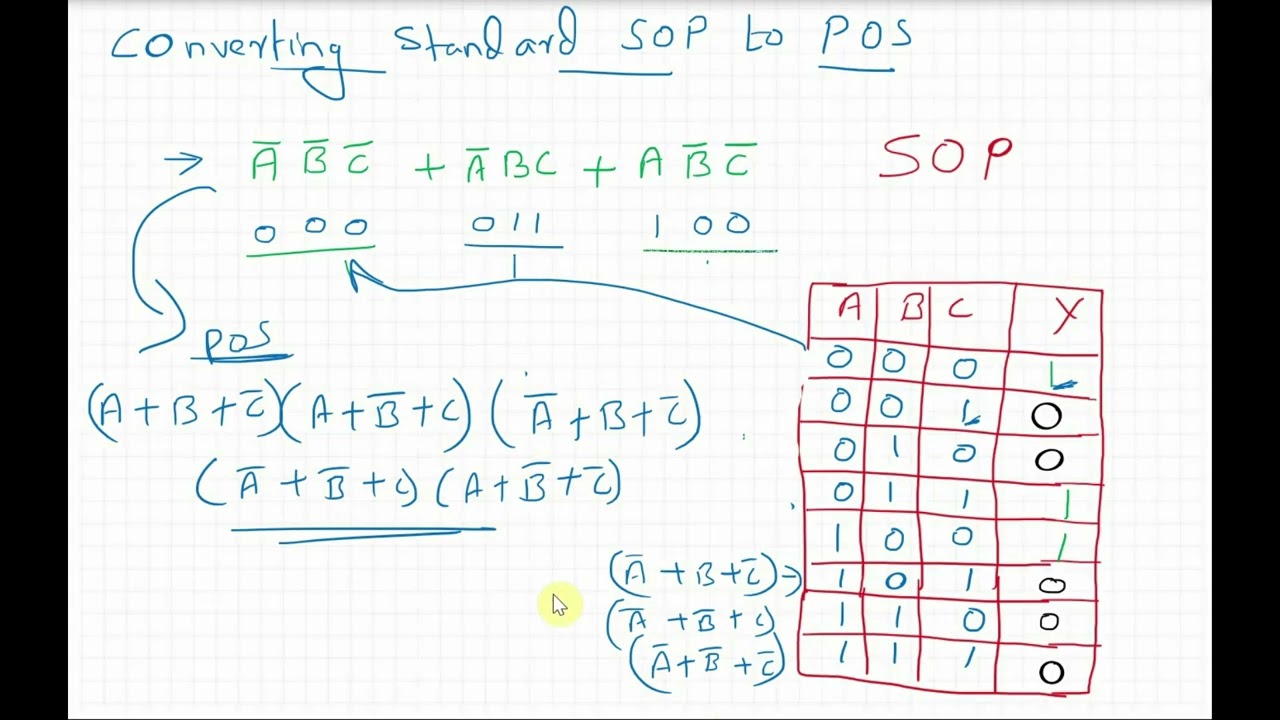 Converting Standard SOP to POS
→ A̅ B̅ C̅ + A̅ B C + A B̅ C̅
SOP
0 0 0 0 1 1 1 0 0
POS
(A + B + C̅)(A + B̅ + C)(A̅ + B + C̅)
(A̅ + B̅ + C)(A + B̅ + C̅)
A B C Y
0 0 0 1
0 0 1 0
0 1 0 0
0 1 1 1
1 0 0 1
(A̅ + B + C̅) → 1 0 1 0
(A̅ + B̅ + C) 1 1 0 0
(A̅ + B̅ + C̅) 1 1 1 0